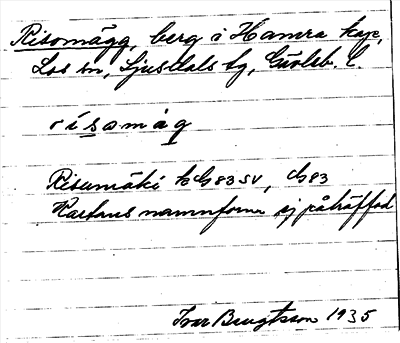 Risomägg, berg i Hamra kap,
Los sn, Ljusdals tg, Gävleb. l.
rísomäg
Risumäki tcb 83 SV, cb 83
Kartans namnform ej påträffad
Ivar Bengtsson 1935